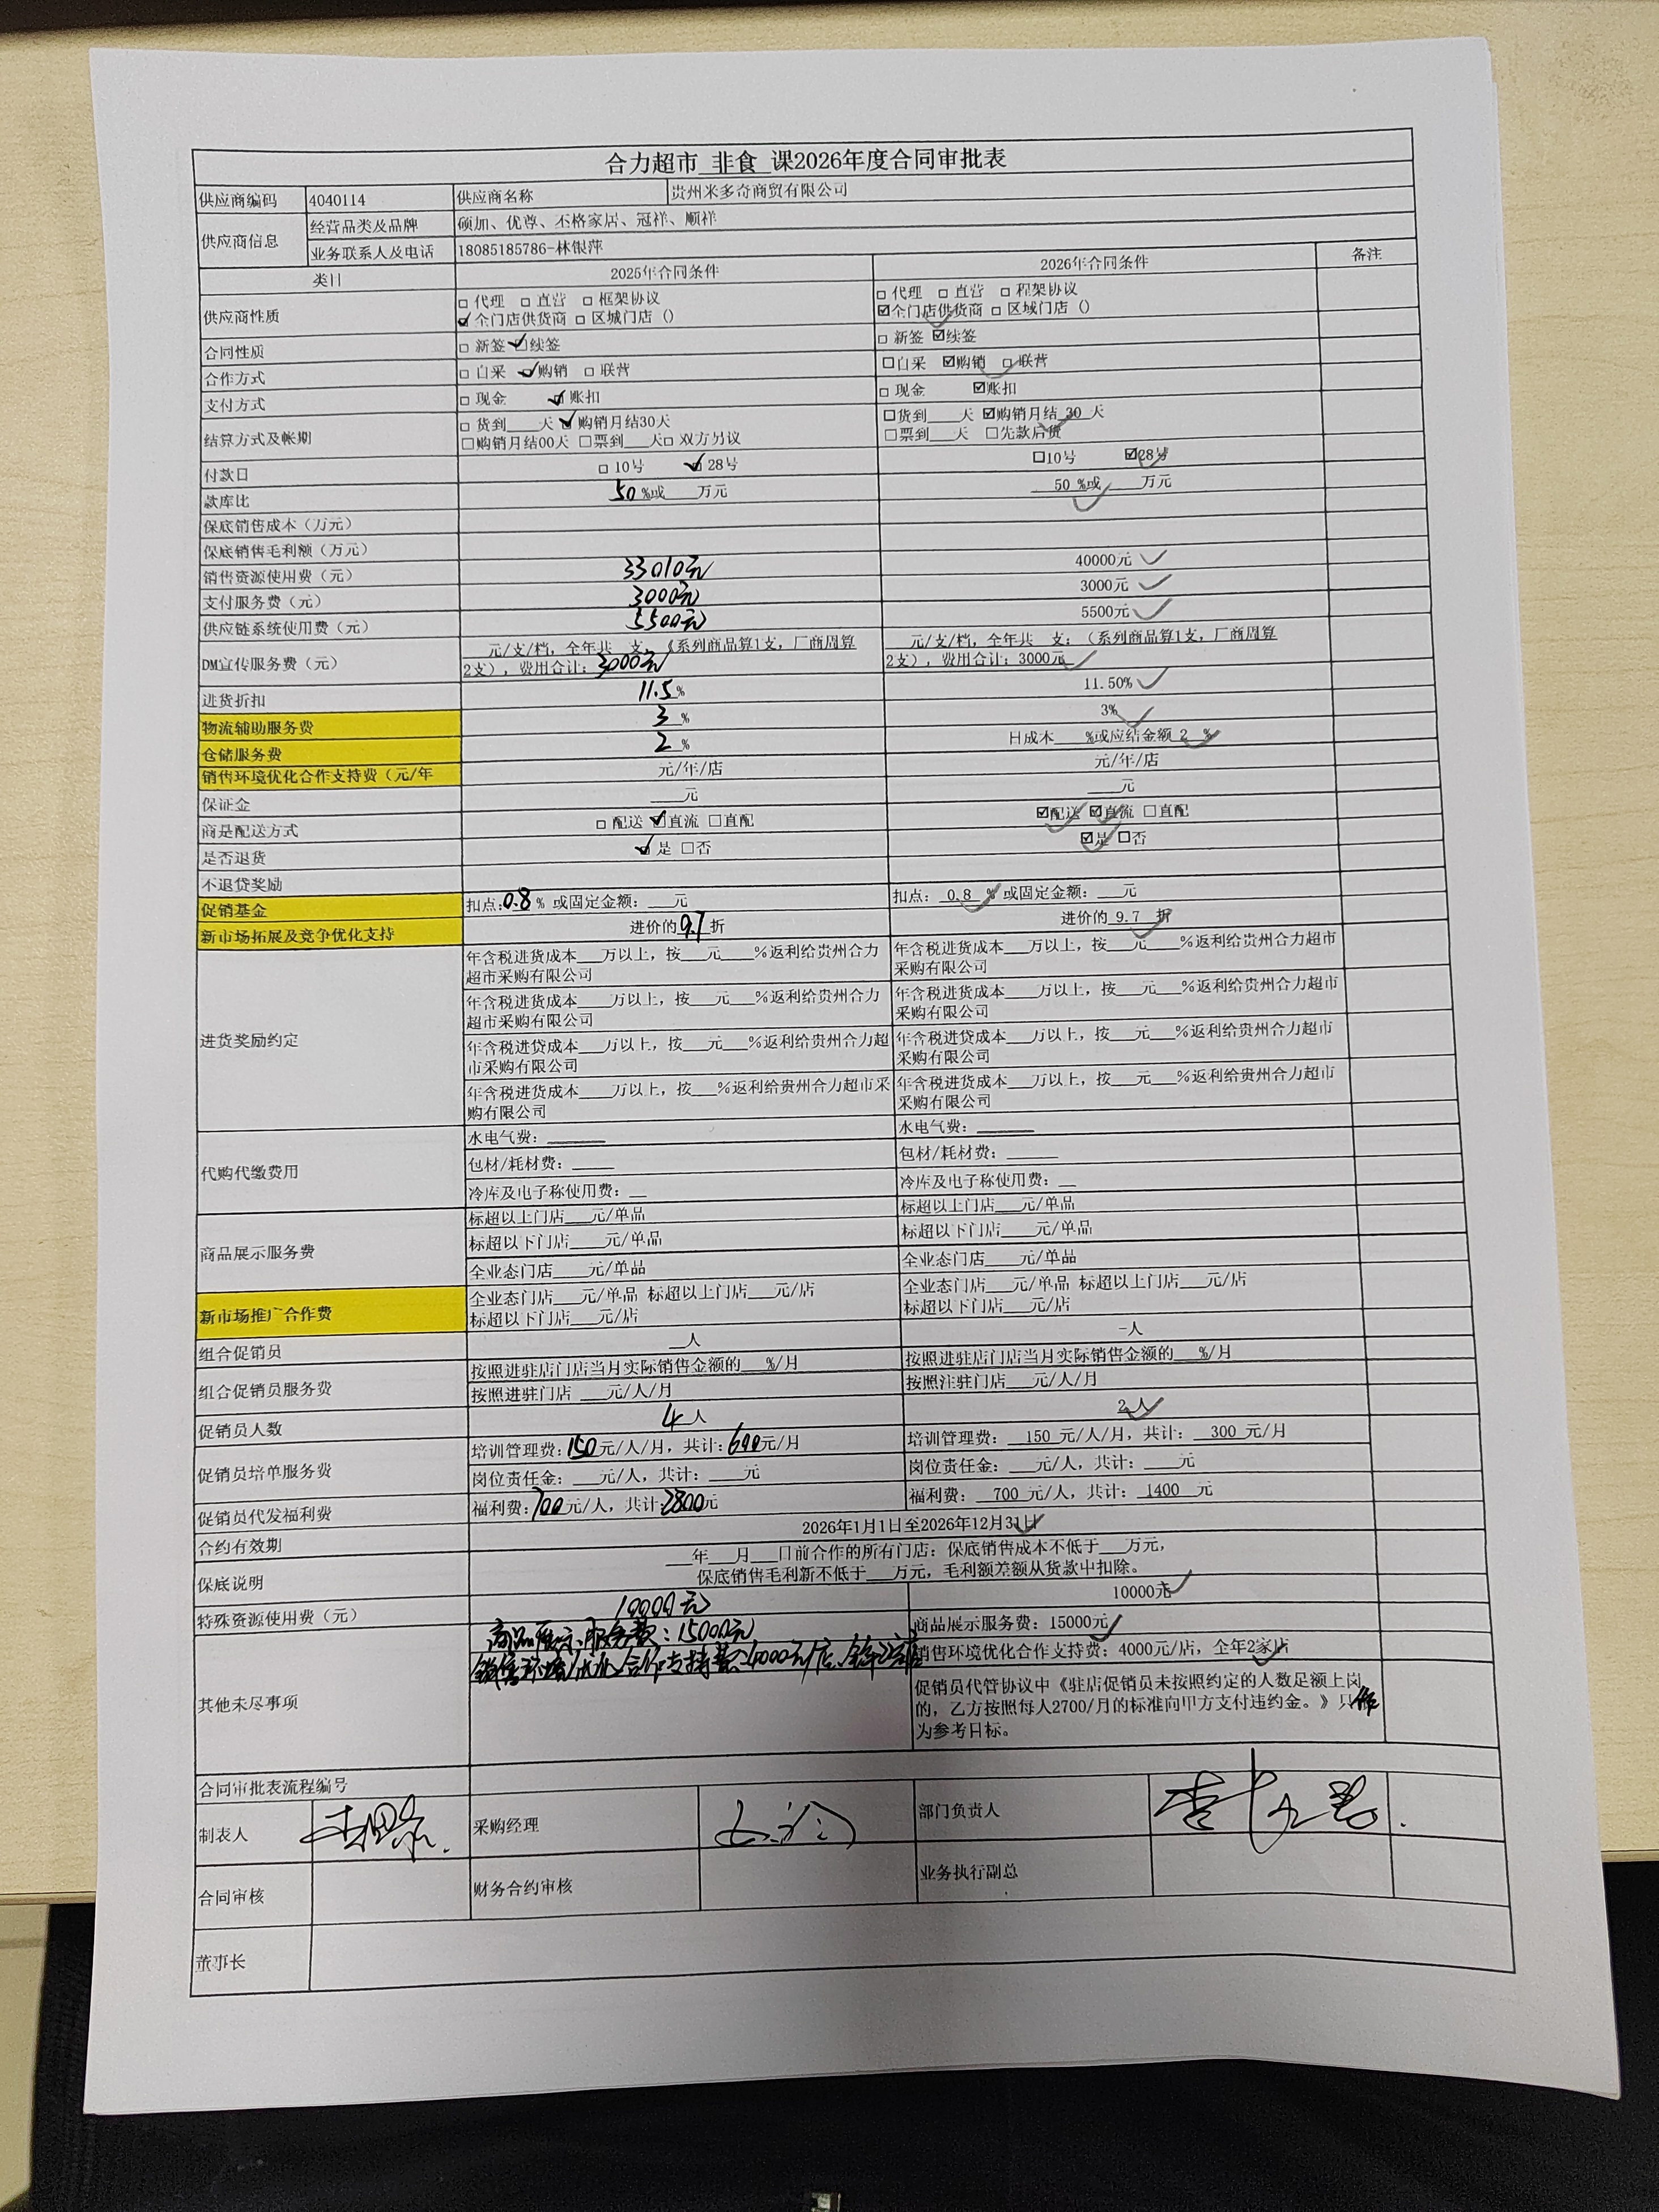 合力超市 非食 课2026年度合同审批表
供应商编码 4040114 供应商名称 贵州米多奇商贸有限公司
供应商信息 经营品类及品牌 硕加、优尊、丕格家居、冠祥、顺祥
业务联系人及电话 18085185786-林银萍
类目 2025年合同条件 2026年合同条件 备注
供应商性质 □ 代理 □ 直营 □ 框架协议 □ 代理 □ 直营 □ 程架协议
☑ 全门店供货商 □ 区城门店 () ☑全门店供货商 □ 区域门店 ()
合同性质 □ 新签 ☑续签 □ 新签 ☑续签
合作方式 □ 自采 ☑购销 □ 联营 □自采 ☑购销 □ 联营
支付方式 □ 现金 ☑账扣 □ 现金 ☑账扣
结算方式及帐期 □ 货到___天 ☑ 购销月结30天 □货到___天 ☑购销月结 30 天
□购销月结00天 □票到___天□ 双方另议 □票到___天 □先款后货
付款日 □ 10号 ☑28号 □10号 ☑28号
款库比 50 %或___万元 50 %或___万元
保底销售成本（万元）
保底销售毛利额（万元）
销售资源使用费（元） 33010元 40000元
支付服务费（元） 3000元 3000元
供应链系统使用费（元） 5500元 5500元
DM宣传服务费（元） ___元/支/档，全年共__支；（系列商品算1支，厂商周算 ___元/支/档，全年共__支；（系列商品算1支，厂商周算
2支），费用合计：3000元 2支），费用合计：3000元
进货折扣 11.5% 11.50%
物流辅助服务费 3 % 3%
仓储服务费 2 % 日成本___%或应结金额 2 %
销售环境优化合作支持费（元/年 元/年/店 元/年/店
保证金 ___元 ___元
商是配送方式 □ 配送 ☑直流 □直配 ☑配送 ☑直流 □直配
是否退货 ☑ 是 □否 ☑是 □否
不退货奖励
促销基金 扣点：0.8 % 或固定金额：___元 扣点： 0.8 % 或固定金额：___元
新市场拓展及竞争优化支持 进价的9.7 折 进价的 9.7 折
进货奖励约定 年含税进货成本___万以上，按___元____%返利给贵州合力 年含税进货成本___万以上，按___元____%返利给贵州合力超市
超市采购有限公司 采购有限公司
年含税进货成本____万以上，按___元___%返利给贵州合力 年含税进货成本____万以上，按___元___%返利给贵州合力超市
超市采购有限公司 采购有限公司
年含税进贷成本___万以上，按___元___%返利给贵州合力超 年含税进贷成本___万以上，按___元___%返利给贵州合力超市
市采购有限公司 采购有限公司
年含税进货成本____万以上，按___%返利给贵州合力超市采 年含税进货成本___万以上，按___元___%返利给贵州合力超市
购有限公司 采购有限公司
代购代缴费用 水电气费：______ 水电气费：______
包材/耗材费：_____ 包材/耗材费：______
冷库及电子称使用费：__ 冷库及电子称使用费：__
商品展示服务费 标超以上门店___元/单品 标超以上门店___元/单品
标超以下门店____元/单品 标超以下门店____元/单品
全业态门店____元/单品 全业态门店____元/单品
新市场推广合作费 全业态门店___元/单品 标超以上门店___元/店 全业态门店___元/单品 标超以上门店___元/店
标超以下门店___元/店 标超以下门店___元/店
组合促销员 __人 -人
组合促销员服务费 按照进驻店门店当月实际销售金额的___%/月 按照进驻店门店当月实际销售金额的___%/月
按照进驻门店 ___元/人/月 按照注驻门店___元/人/月
促销员人数 4 人 2 人
促销员培单服务费 培训管理费：150元/人/月，共计：600元/月 培训管理费： 150 元/人/月，共计： 300 元/月
岗位责任金：___元/人，共计：____元 岗位责任金：___元/人，共计：___元
促销员代发福利费 福利费：700元/人，共计：2800元 福利费： 700 元/人，共计： 1400 元
合约有效期 2026年1月1日至2026年12月31日
保底说明 ___年___月___日前合作的所有门店：保底销售成本不低于___万元，
保底销售毛利新不低于___万元，毛利额差额从货款中扣除。
特殊资源使用费（元） 10000元 10000元
其他未尽事项 商品展示服务费：15000元 商品展示服务费：15000元
销售环境优化合作支持费：4000元/店，全年2家店 销售环境优化合作支持费：4000元/店，全年2家店
促销员代管协议中《驻店促销员未按照约定的人数足额上岗
的，乙方按照每人2700/月的标准向甲方支付违约金。》只作
为参考目标。
合同审批表流程编号
制表人 采购经理 部门负责人
合同审核 财务合约审核 业务执行副总
董事长